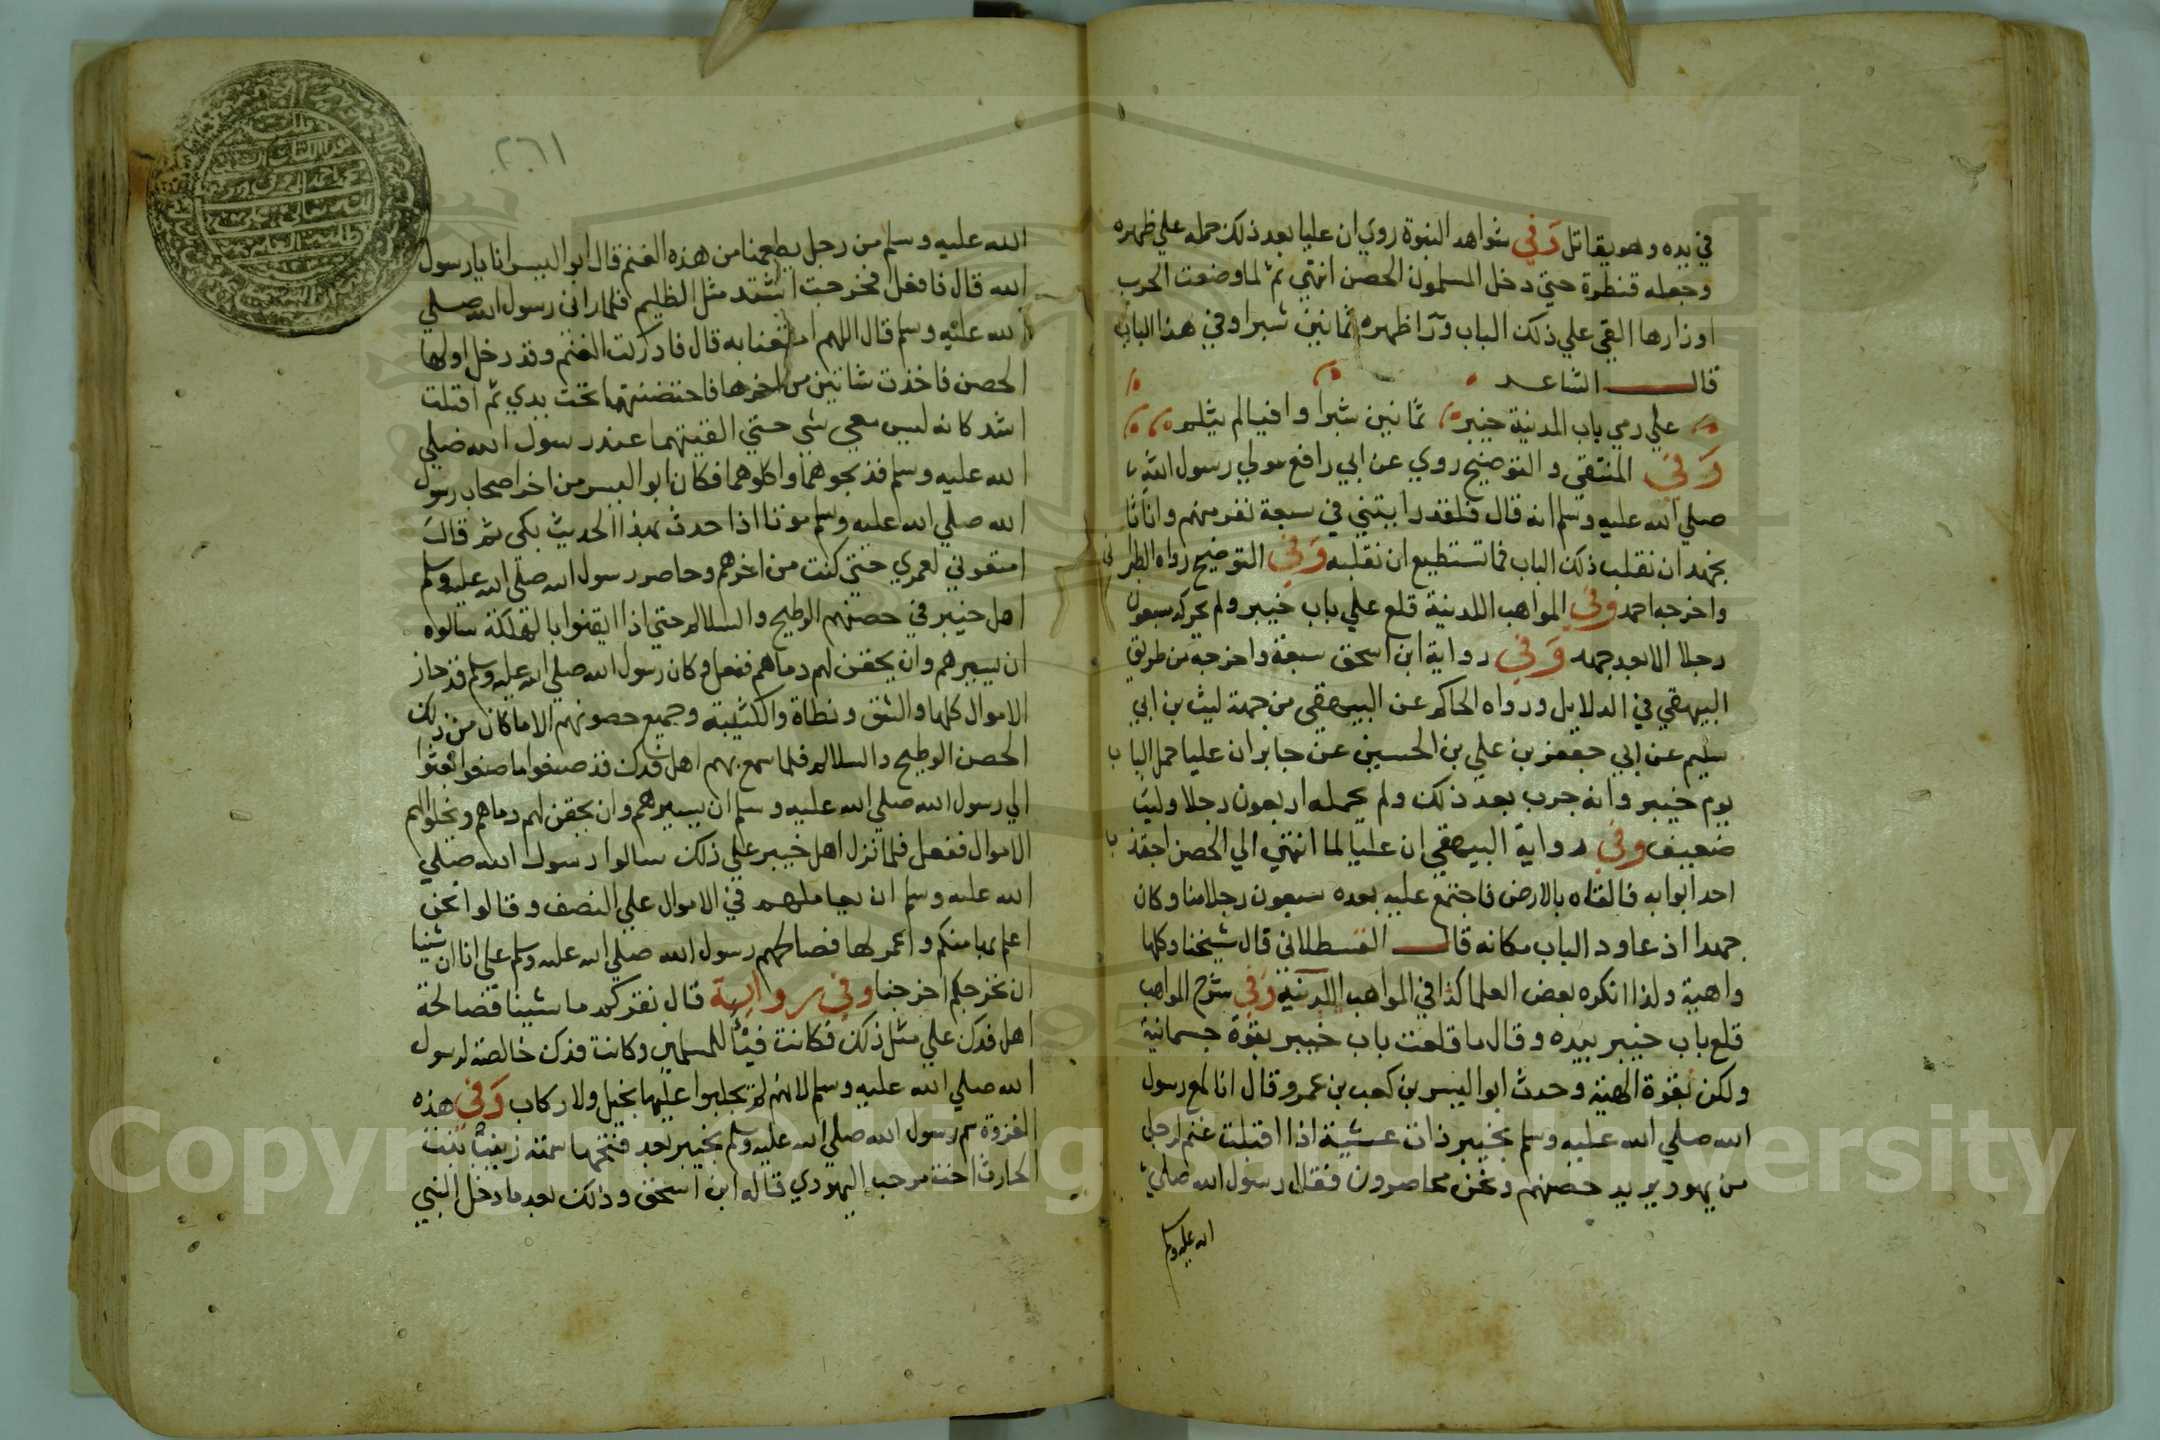 في يده وهو يقاتل وفي شواهد النبوة روي ان عليا بعد ذلك حمله علي ظهره
وجعله قنطرة حتي دخل المسلمون الحصن انتهي ثم لما وضعت الحرب
اوزارها القي علي ذلك الباب ورآ ظهره ثمانين شبرا وفي هذا الباب
قال الشاعر
علي رمي باب المدينة خيبر ثمانين شبرا وافيا لم يثلم
وفي المنتقي والتوضيح روي عن ابي رافع مولي رسول الله
صلي الله عليه وسلم انه قال فلقد رايتني في سبعة نفر منهم وانا ثامنهم
نجهد ان نقلب ذلك الباب فما نستطيع ان نقلبه وفي التوضيح رواه الطبراني
واخرجه احمد وفي المواهب اللدنية قلع علي باب خيبر ولم يحركه سبعون
رجلا الا بعد جهد وفي رواية ابن اسحق سبعة واخرجه من طريق
البيهقي في الدلايل ورواه الحاكم عن البيهقي من جهة ليث بن ابي
سليم عن ابي جعفر بن علي بن الحسين عن جابر ان عليا حمل الباب
يوم خيبر وانه جرب بعد ذلك ولم يحمله اربعون رجلا وليث
ضعيف وفي رواية البيهقي ان عليا لما انتهي الي الحصن اجتذب
احد ابوابه فالقاه بالارض فاجتمع عليه بعده سبعون رجلا منا وكان
جهدا اذ عاود الباب مكانه قال القسطلاني قال شيخنا وكلها
واهية ولذا انكره بعض العلما كذا في المواهب اللدنية وفي شرح المواهب
قلع باب خيبر بيده وقال ما قلعت باب خيبر بقوة جسمانية
ولكن بقوة الهية وحدث ابو اليسر بن كعب بن عمرو قال انا لمع رسول
الله صلي الله عليه وسلم بخيبر ذات عشية اذا اقبلت غنم لرجل
من يهود يريد حصنهم ونحن محاصرون فقال رسول الله صلي
الله عليه وسلم
٢٦١
الله عليه وسلم من رجل يطعمنا من هذه الغنم قال ابو اليسر انا يا رسول
الله قال فافعل فخرجت اشتد مثل الظليم فلما راني رسول الله صلي
الله عليه وسلم قال اللهم امتعنا به قال فادركت الغنم وقد دخل اولها
الحصن فاخذت شاتين من اخرها فاحتضنتهما تحت يدي ثم اقبلت
اشد كانه ليس معي شي حتي القيتهما عند رسول الله صلي
الله عليه وسلم فذبحوهما واكلوهما فكان ابو اليسر من اخر اصحاب رسول
الله صلي الله عليه وسلم موتا اذا حدث بهذا الحديث بكي ثم قال
امتعوني لعمري حتي كنت من اخرهم وحاصر رسول الله صلي الله عليه وسلم
اهل خيبر في حصنهم الوطيح والسلالم حتي اذا ايقنوا بالهلكة سالوه
ان يسيرهم وان يحقن لهم دماهم ففعل وكان رسول الله صلي الله عليه وسلم قد حاز
الاموال كلها والشق ونطاة والكثيبة وجميع حصونهم الا ما كان من ذلك
الحصن الوطيح والسلالم فلما سمع بهم اهل فدك قد صنعوا ما صنعوا بعثوا
الي رسول الله صلي الله عليه وسلم ان يسيرهم وان يحقن لهم دماهم ويخلوا لهم
الاموال ففعل فلما نزل اهل خيبر علي ذلك سالوا رسول الله صلي
الله عليه وسلم ان يعاملهم في الاموال علي النصف وقالوا نحن
اعلم بها منكم واعمر لها فصالحهم رسول الله صلي الله عليه وسلم علي انا ان شئنا
ان نخرجكم اخرجنا وفي رواية قال نقركم ما شينا فصالحه
اهل فدك علي مثل ذلك فكانت فيئا للمسلمين وكانت فدك خالصة لرسول
الله صلي الله عليه وسلم لانهم لم يجلبوا عليها بخيل ولا ركاب وفي هذه
الغزوة سم رسول الله صلي الله عليه وسلم بخيبر بعد فتحها سمته زينب بنت
الحارث اخت مرحب اليهودي قاله ابن اسحق وذلك بعد ما دخل النبي
Copyright © King Saud University